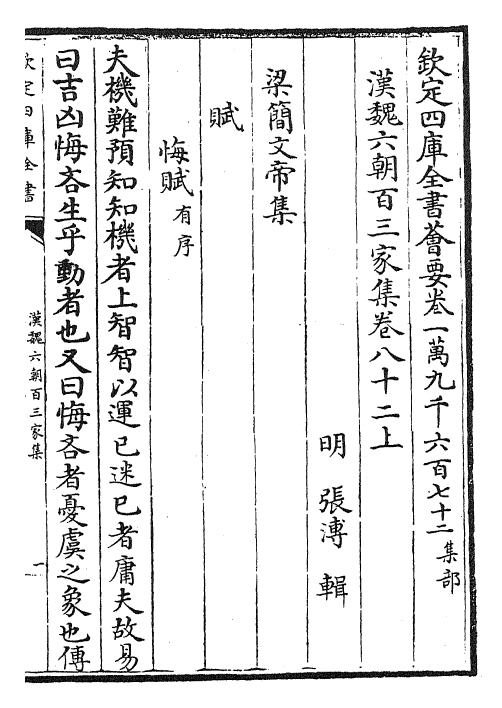 欽定四庫全書薈要卷一萬九千六百七十二集部
漢魏六朝百三家集卷八十二上
明 張溥 輯
梁簡文帝集
賦
悔賦有序
夫機難預知知機者上智智以運已迷已者庸夫故易
曰吉凶悔吝生乎動者也又曰悔吝者憂虞之象也傳
欽定四庫全書
漢魏六朝百三家集
一